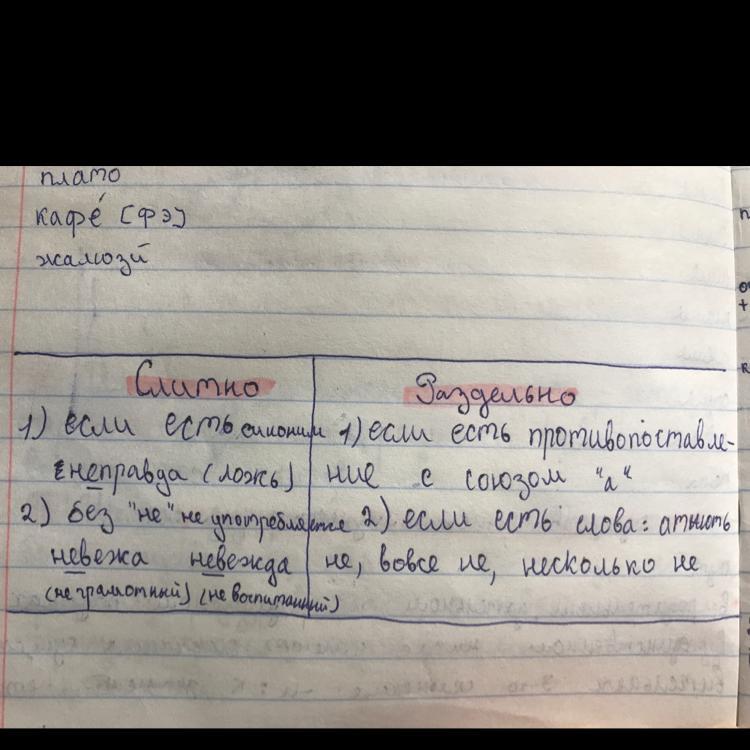 плато
кафе́ [фэ]
жалюзи́
Слитно
1) если есть синоним
неправда (ложь)
2) без "не" не употребляется
невежа невежда
(не грамотный) (не воспитанный)
Раздельно
1) если есть противопоставле-
ние с союзом "а"
2) если есть слова: атнють
не, вовсе не, несколько не